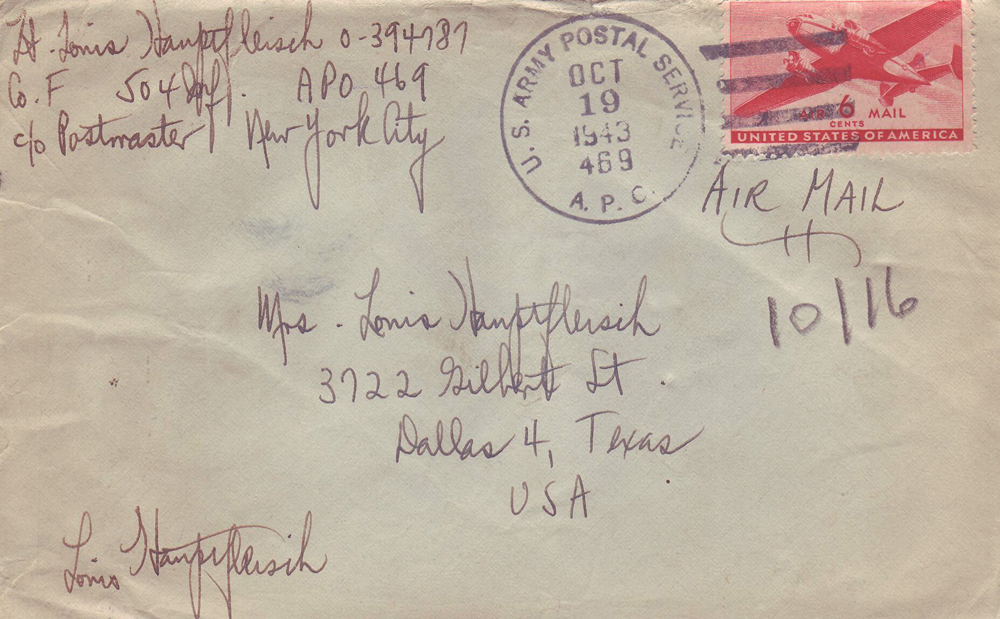 Lt. Louis Hauptfleisch O-394787
Co. F 504 Inf. APO 469
c/o Postmaster New York City
U. S. ARMY POSTAL SERVICE
OCT
19
1943
469
A. P. O.
AIR 6 MAIL
CENTS
UNITED STATES OF AMERICA
AIR MAIL
10/16
Mrs. Louis Hauptfleisch
3722 Gilbert St.
Dallas 4, Texas
USA
Louis Hauptfleisch